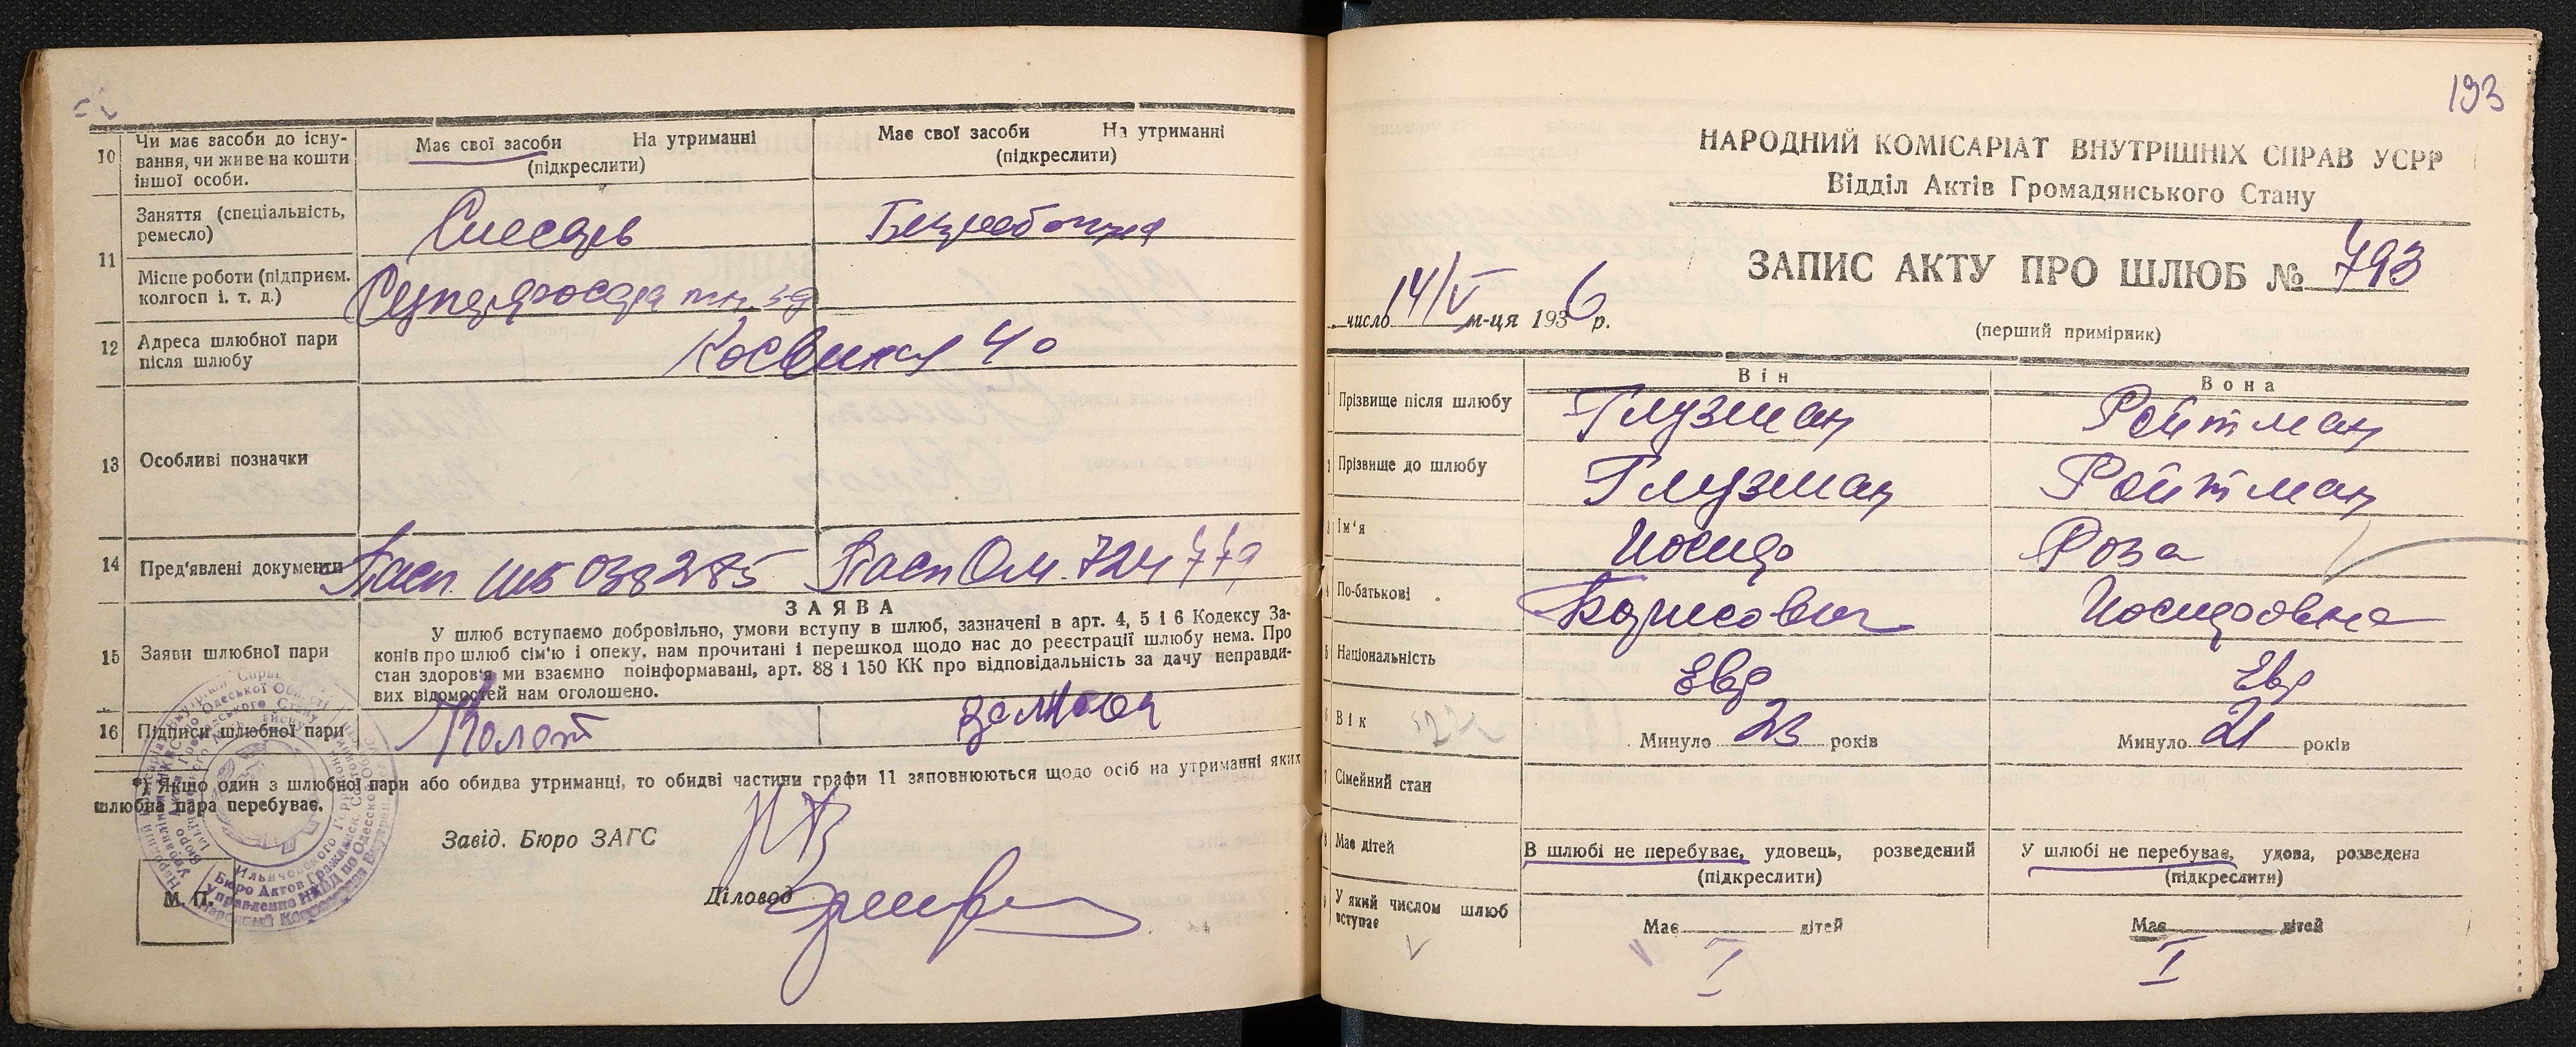 10 Чи має засоби до існу-
вання, чи живе на кошти
іншої особи.
Має свої засоби На утриманні
(підкреслити)
Має свої засоби На утриманні
(підкреслити)
11 Заняття (спеціальність,
ремесло)
Слесарь
Безработная
Місце роботи (підприєм.
колгосп і. т. д.)
12 Адреса шлюбної пари
після шлюбу
40
13 Особливі позначки
14 Пред'явлені документи
Пасп. ШБ 038285
Пасп ОМ. 724
15 Заяви шлюбної пари
ЗАЯВА
У шлюб вступаємо добровільно, умови вступу в шлюб, зазначені в арт. 4, 5 і 6 Кодексу За-
конів про шлюб сім'ю і опеку, нам прочитані і перешкод щодо нас до реєстрації шлюбу нема. Про
стан здоров'я ми взаємно поінформавані, арт. 88 і 150 КК про відповідальність за дачу неправди-
вих відомостей нам оголошено.
16 Підписи шлюбної пари
*) Якщо один з шлюбної пари або обидва утриманці, то обидві частини графи 11 заповнюються щодо осіб на утриманні яких
шлюбна пара перебуває.
Завід. Бюро ЗАГС
Діловод
М. П.
193
НАРОДНИЙ КОМІСАРІАТ ВНУТРІШНІХ СПРАВ УСРР
Відділ Актів Громадянського Стану
ЗАПИС АКТУ ПРО ШЛЮБ № 793
число 14/V м-ця 1936 р.
(перший примірник)
Він
Вона
1 Прізвище після шлюбу
Глузман
Ройтман
2 Прізвище до шлюбу
Глузман
Ройтман
3 Ім'я
Иосиф
Роза
4 По-батькові
Борисович
Иосифовна
5 Національність
Евр
Евр
6 Вік
22
Минуло 23 років
Минуло 21 років
7 Сімейний стан
8 Має дітей
В шлюбі не перебуває, удовець, розведений
(підкреслити)
У шлюбі не перебуває, удова, розведена
(підкреслити)
9 У який числом шлюб
вступає
Має дітей
Має дітей
I
I